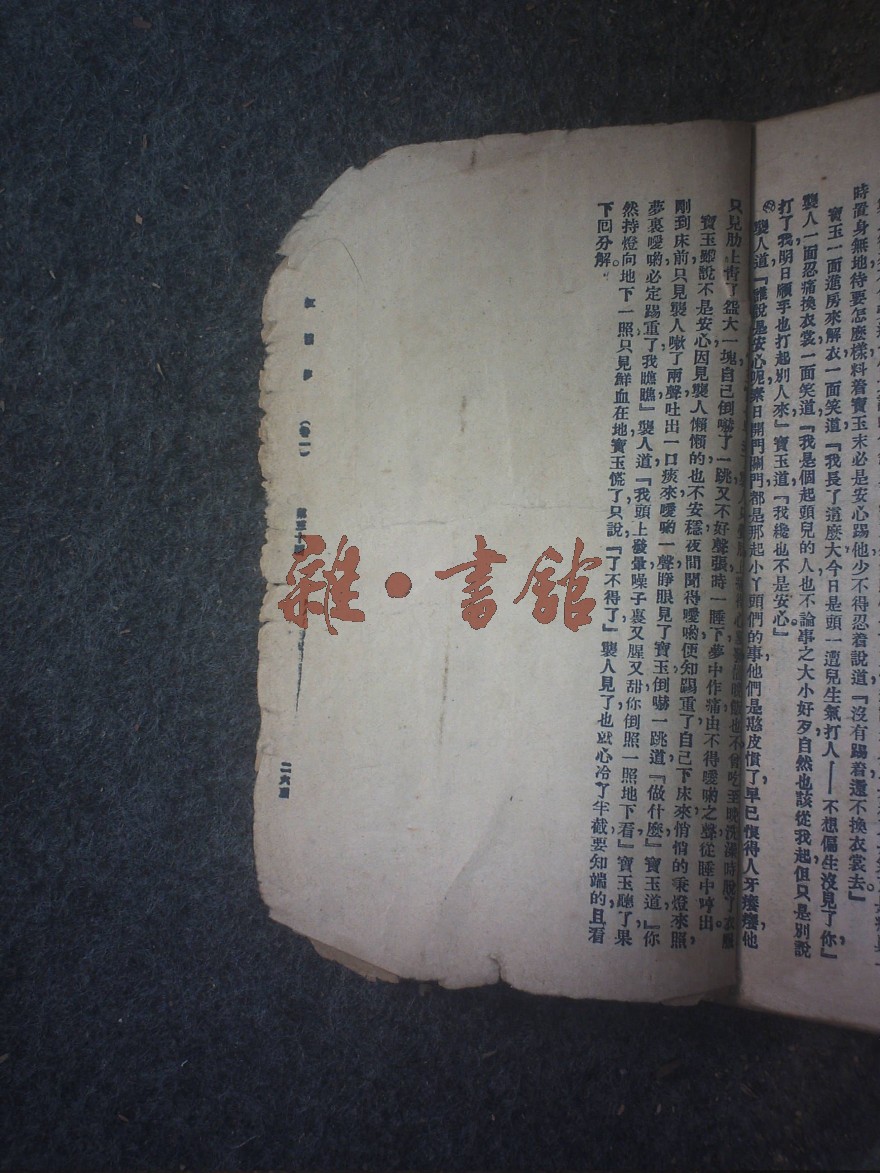 時置身無地待要怎麼樣料着寶玉未必是安心踢他少不得忍着說道『沒有踢着還不換衣裳去』
寶玉一面進房來解衣一面笑道『我長了這麼大今日是頭一遭兒生氣打人──不想偏生沒見了你』
襲人一面忍痛換衣裳一面笑道『我是個起頭兒的人也不論事之大小好歹自然也該從我起但只是別說
打了我明日順手也打起別人來』寶玉道『我纔也不是安心』
襲人道『誰說是安心呢素日開門關門都是那起小丫頭們的事他們是憨皮慣了早已恨得人牙癢癢他
只見肋上青了盌大一塊自己倒嚇了一跳又不好聲張時一睡下夢中作痛由不得噯喲之聲從睡中哼出
寶玉雖說不是安心因見襲人懶懶的也不安穩夜間聞得噯喲便知踢重了自己下床來悄悄的秉燈來照
剛到床前只見襲人嗽了兩聲吐出一口痰來噯喲一聲睜眼見了寶玉倒嚇一跳道『做什麼』寶玉道『你
夢裏噯喲必定踢重了我瞧瞧』襲人道『我頭上發暈嗓子裏又腥又甜你倒照一照地下看』寶玉聽了果
然持燈向地下一照只見鮮血在地寶玉慌了只說『了不得了』襲人見了也就心冷了半截要知端的且看
下回分解。
紅樓夢 (卷一) 第三十回 二六
雜·書館